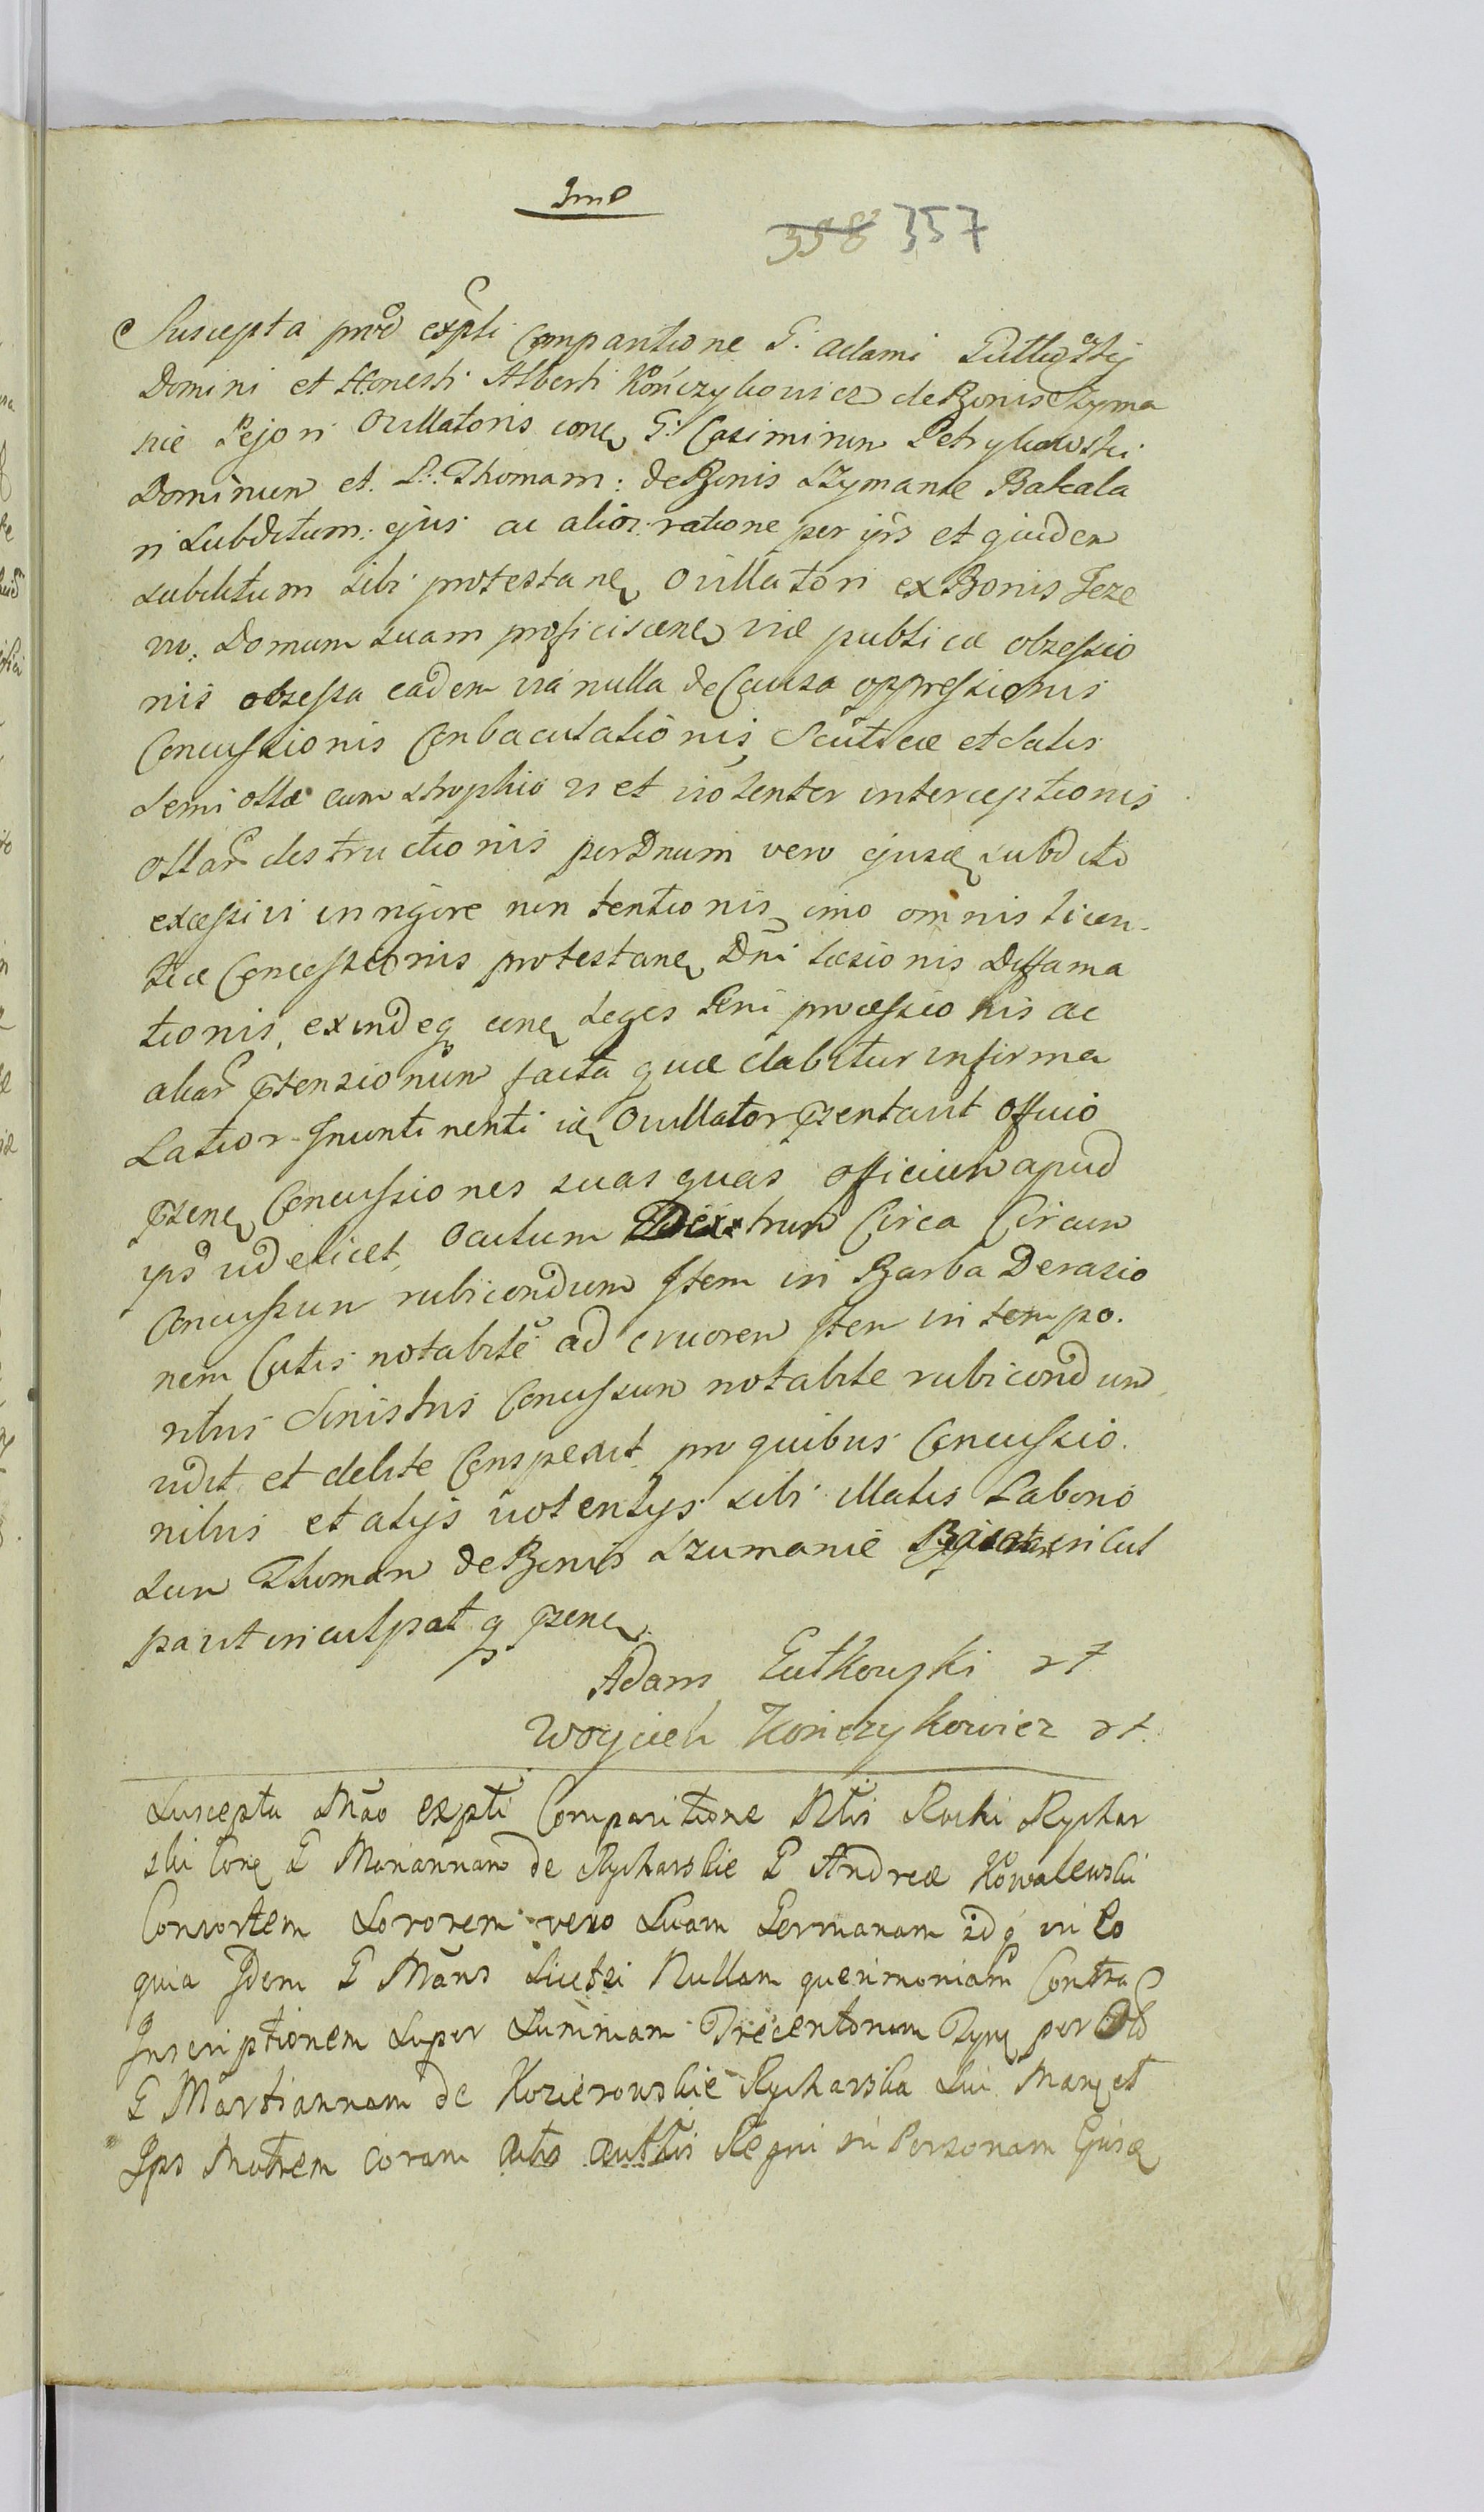 3mo
358 357
Suscepta pro expti Comparitione G. Adami Gutkowski
Domini et Honesti Alberti Kończykowicz de Bonis Szyma
nie Pejori Ovillatoris conq G. Casimirum Petrykowski
Dominum et L. Thomam: de Bonis Szymanie Bakala
ri Subditum: ejus ac alior ratione per ijs et quidem
subditum sibi protestanq Ovillatori ex Bonis Jeze
wo: Domum suam proficiscenq viæ publicæ obsessio
nis obsessa eadem via nulla de Causa oppressionis
Concussionis Conbaculationis, Scuticæ et Salis
Semi ollæ cum strophio vi et violenter interceptionis
ollar destructionis per Dnum vero ejusq subdito
excessivi in rigore non tentionis imo omnis licen-
tiæ Concessionis protestanq Dni læsionis Diffama
tionis, exindeq conq Leges Rni processionis ac
aliar ptensionum facta quæ dabitur in firma
Latior Incontinenti idq Ovillator pzentavit Officio
pzenq Concussiones suas quas officium apud
ips videlicet, Oculum Dextrum Circa Circum
Concussum rubicondum Item in Barba Derasio
nem Cutis notabile ad cruorem Item in tempo.
ribus Sinistris Concussum notabile rubicondum
vidit et debite Conspexit pro quibus Concussio.
nibus et alijs violentijs sibi illatis Laborio
sum Thomam de Bonis Szumanie incul
pavit inculpatq pzenq.
Adam Gutkowski rt
Woyciech Kończykowicz rt.
Suscepta Mão expti Comparitione Nbis Rochi Rychar
ski Conq G Mariannam de Rycharskie G Andreæ Kowalewski
Consortem Sororem vero Suam Germanam idq in Eo
quia Idem G Mans licet ei Nullam querimoniam Contra
Inscriptionem Super Summam Trecentorum Tynq per Olo
G Martiannam de Kozierowskie Rycharska Sui Manq et
Ips Matrem coram Actis Regni in Personam Ejusq